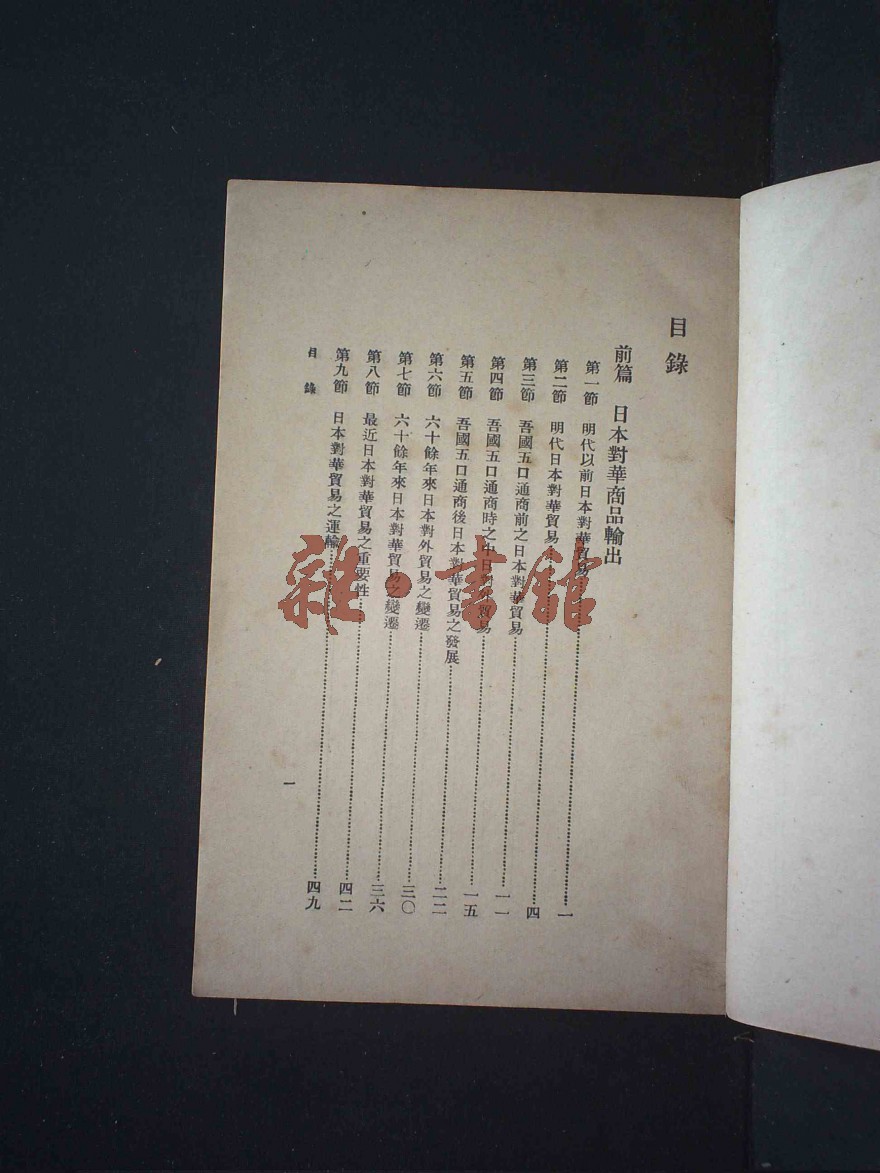 目錄
前篇　日本對華商品輸出
第一節　明代以前日本對華貿易……一
第二節　明代日本對華貿易……四
第三節　吾國五口通商前之日本對華貿易……一一
第四節　吾國五口通商時之中日對外貿易……一五
第五節　吾國五口通商後日本對華貿易之發展……二二
第六節　六十餘年來日本對外貿易之變遷……三〇
第七節　六十餘年來日本對華貿易之變遷……三六
第八節　最近日本對華貿易之重要性……四二
第九節　日本對華貿易之運輸……四九
目錄
一
雜·書館